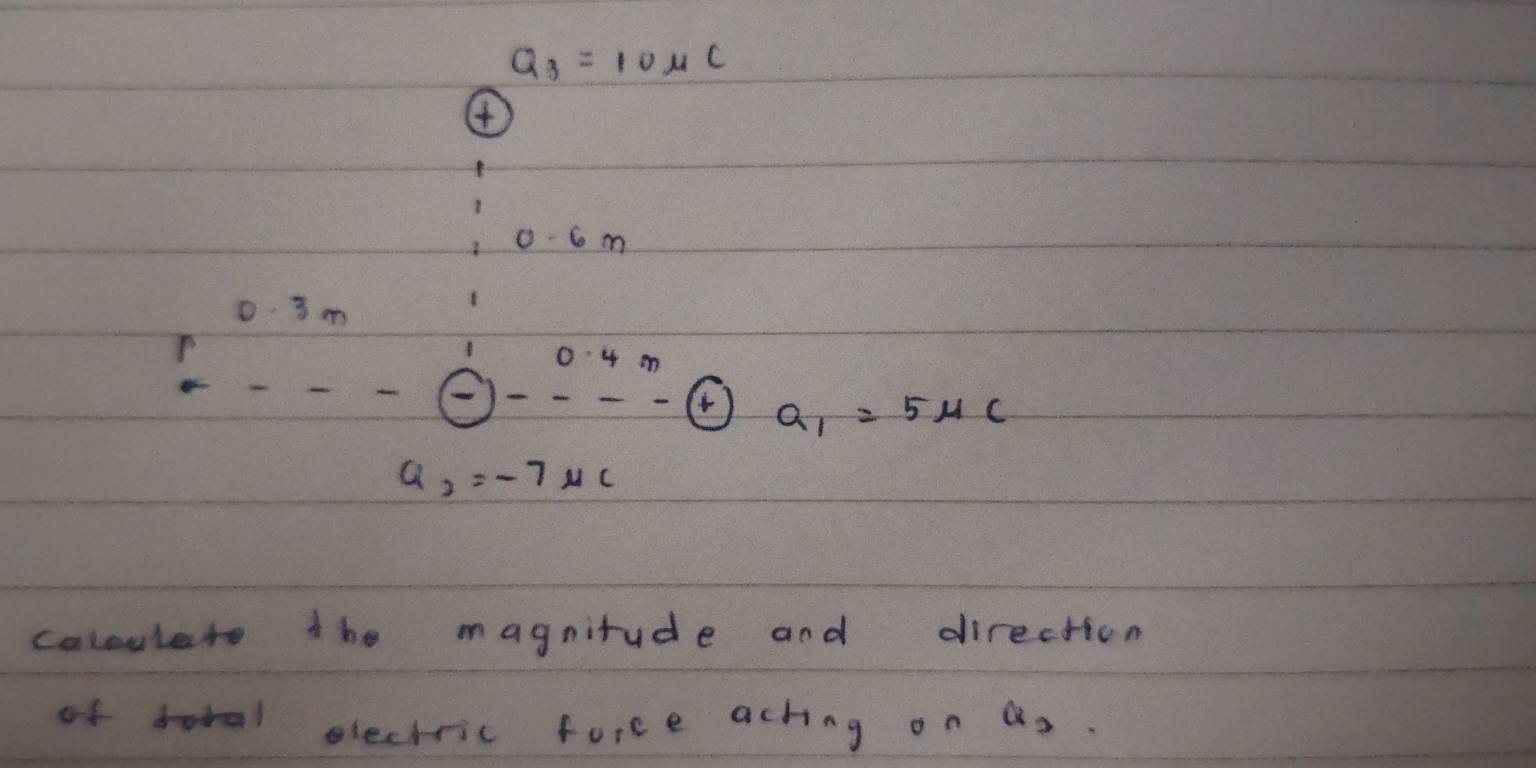 Q3 = 10 μC
+
0.6 m
0.3 m
P
0.4 m
-
+
Q1 = 5 μC
Q2 = -7 μC
calculate the magnitude and direction
of total electric force acting on Q2.